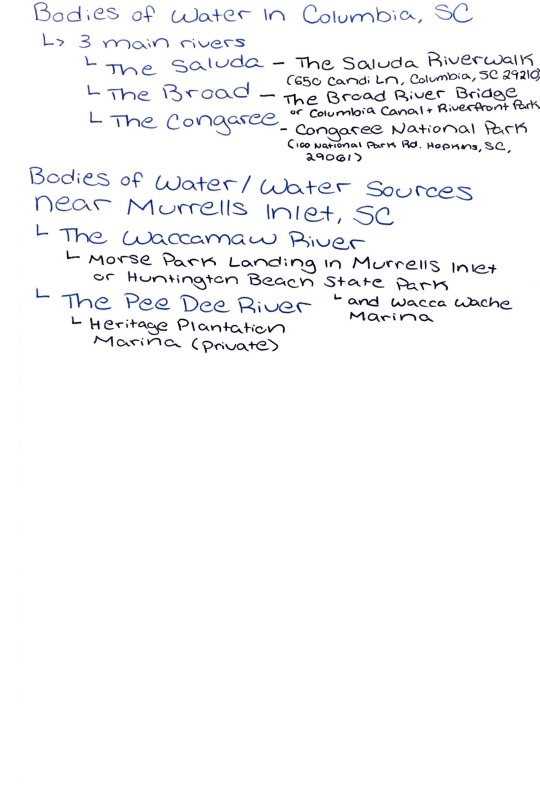 Bodies of Water in Columbia, SC
↳ 3 main rivers
└ The Saluda - The Saluda Riverwalk
(650 Candi Ln, Columbia, SC 29210)
└ The Broad - The Broad River Bridge
or Columbia Canal + Riverfront Park
└ The Congaree - Congaree National Park
(100 National Park Rd. Hopkins, SC,
29061)
Bodies of Water/Water Sources
near Murrells Inlet, SC
└ The Waccamaw River
└ Morse Park Landing in Murrells Inlet
or Huntington Beach State Park
└ and Wacca Wache
Marina
└ The Pee Dee River
└ Heritage Plantation
Marina (Private)